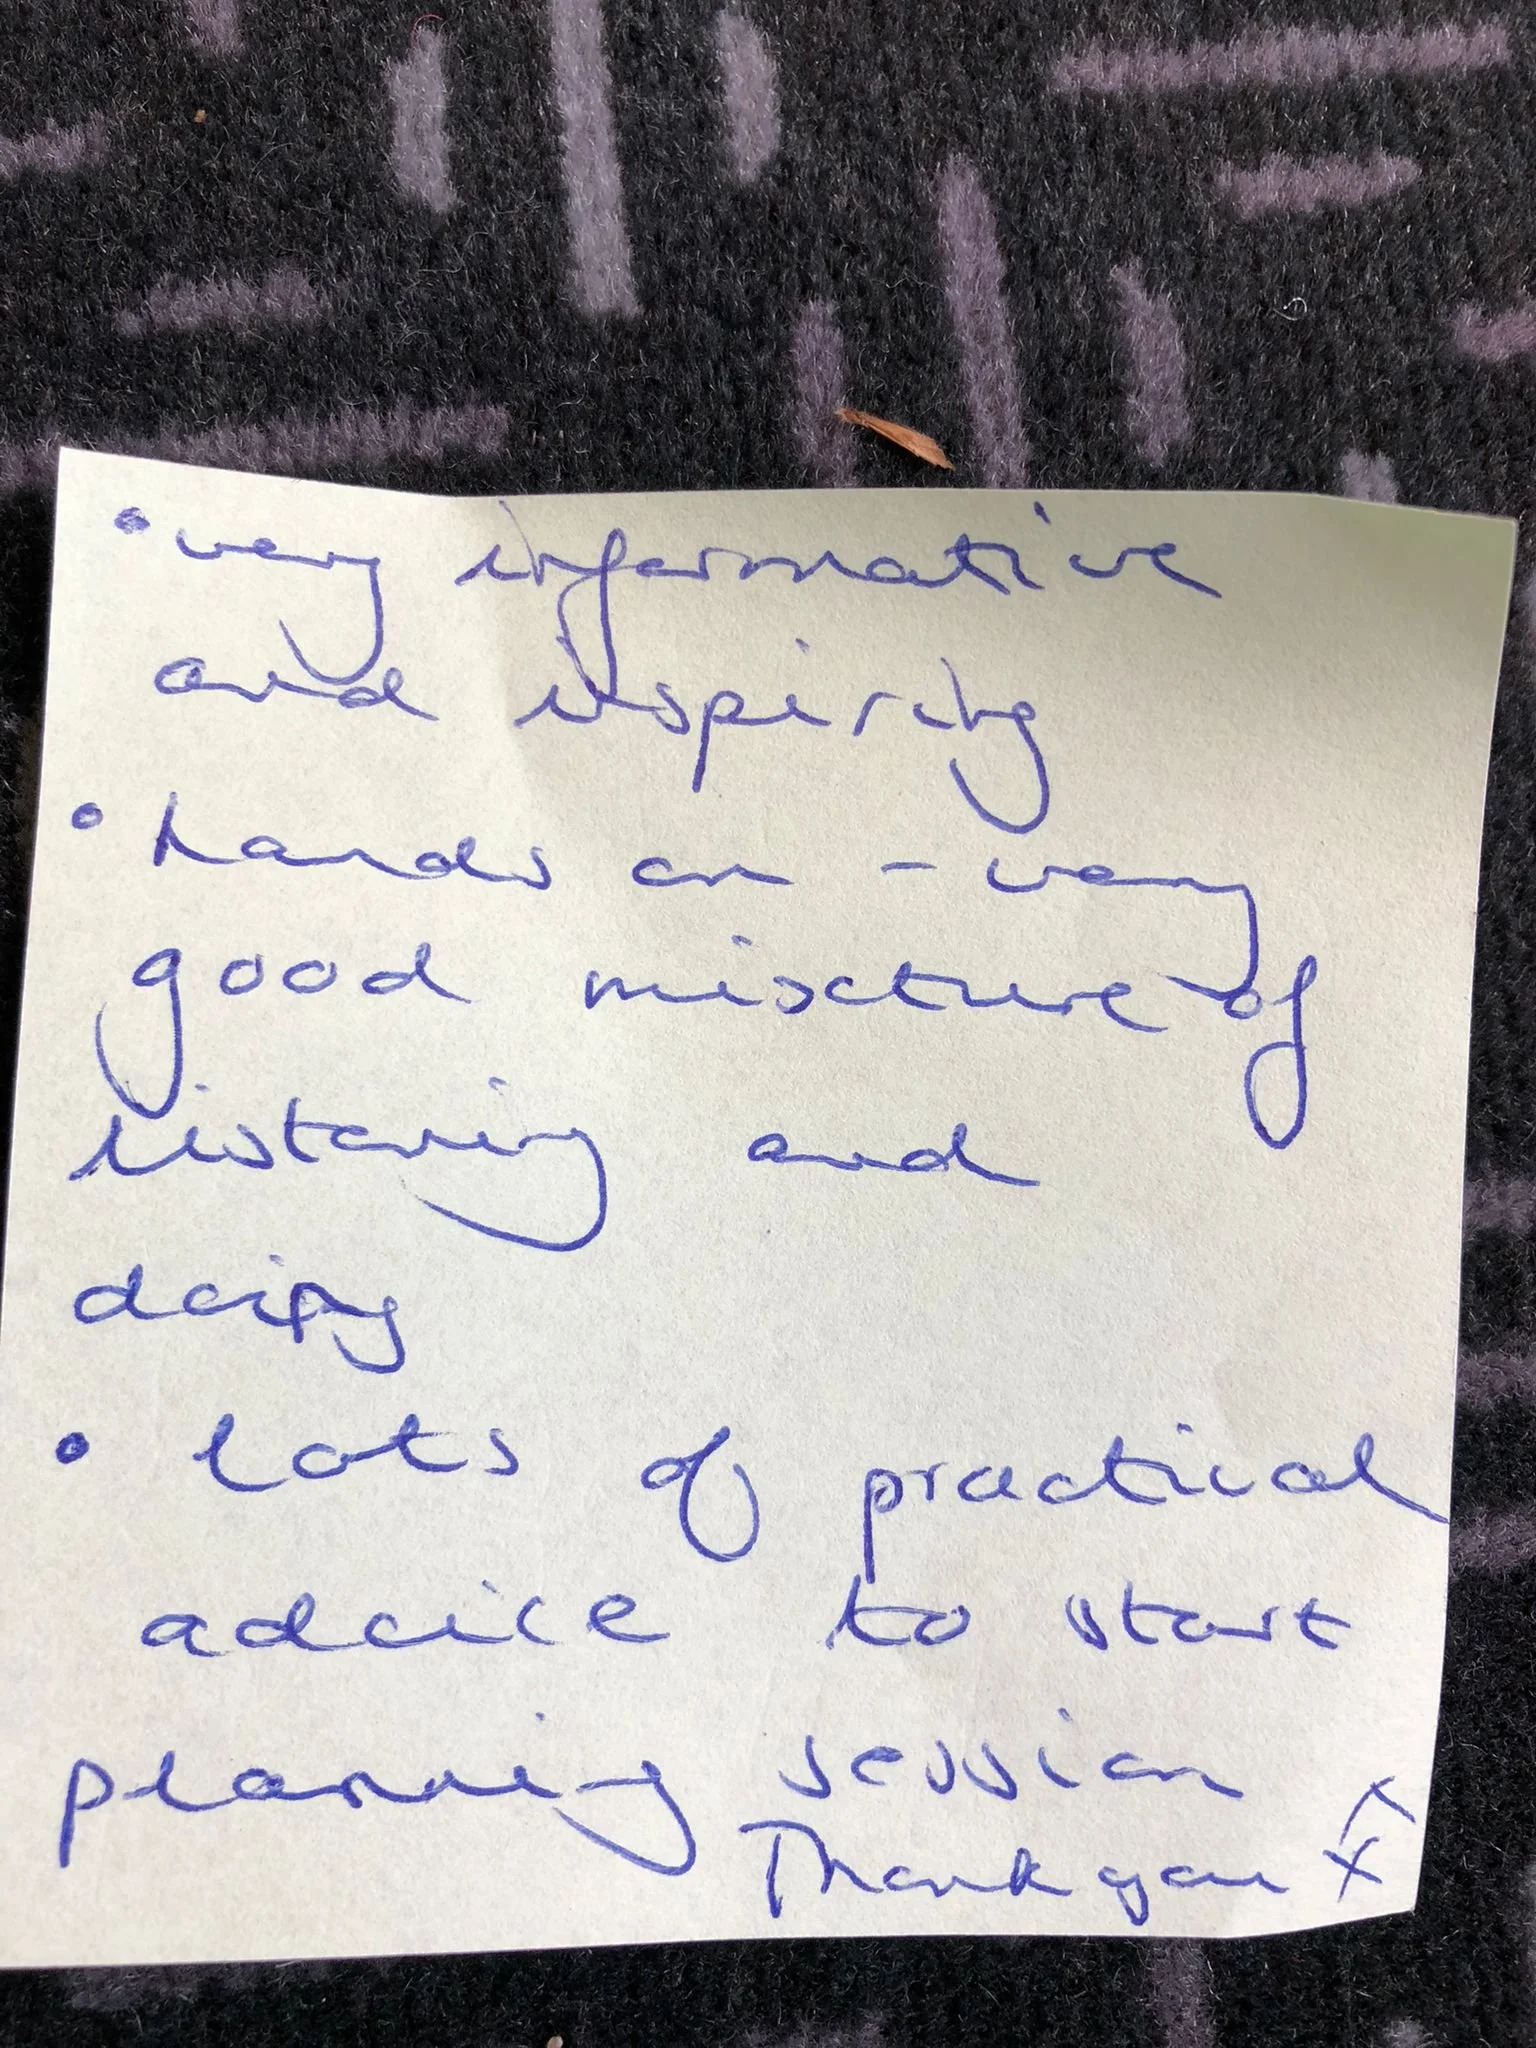 • very informative
and inspiring
• hands on - very
good mixture of
listening and
doing
• lots of practical
advice to start
planning session
Thank you x